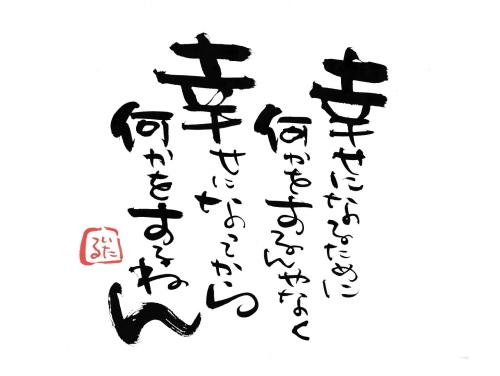 幸せになるために
何かをするんやなく
幸せになってから
何かをするねん
いたる